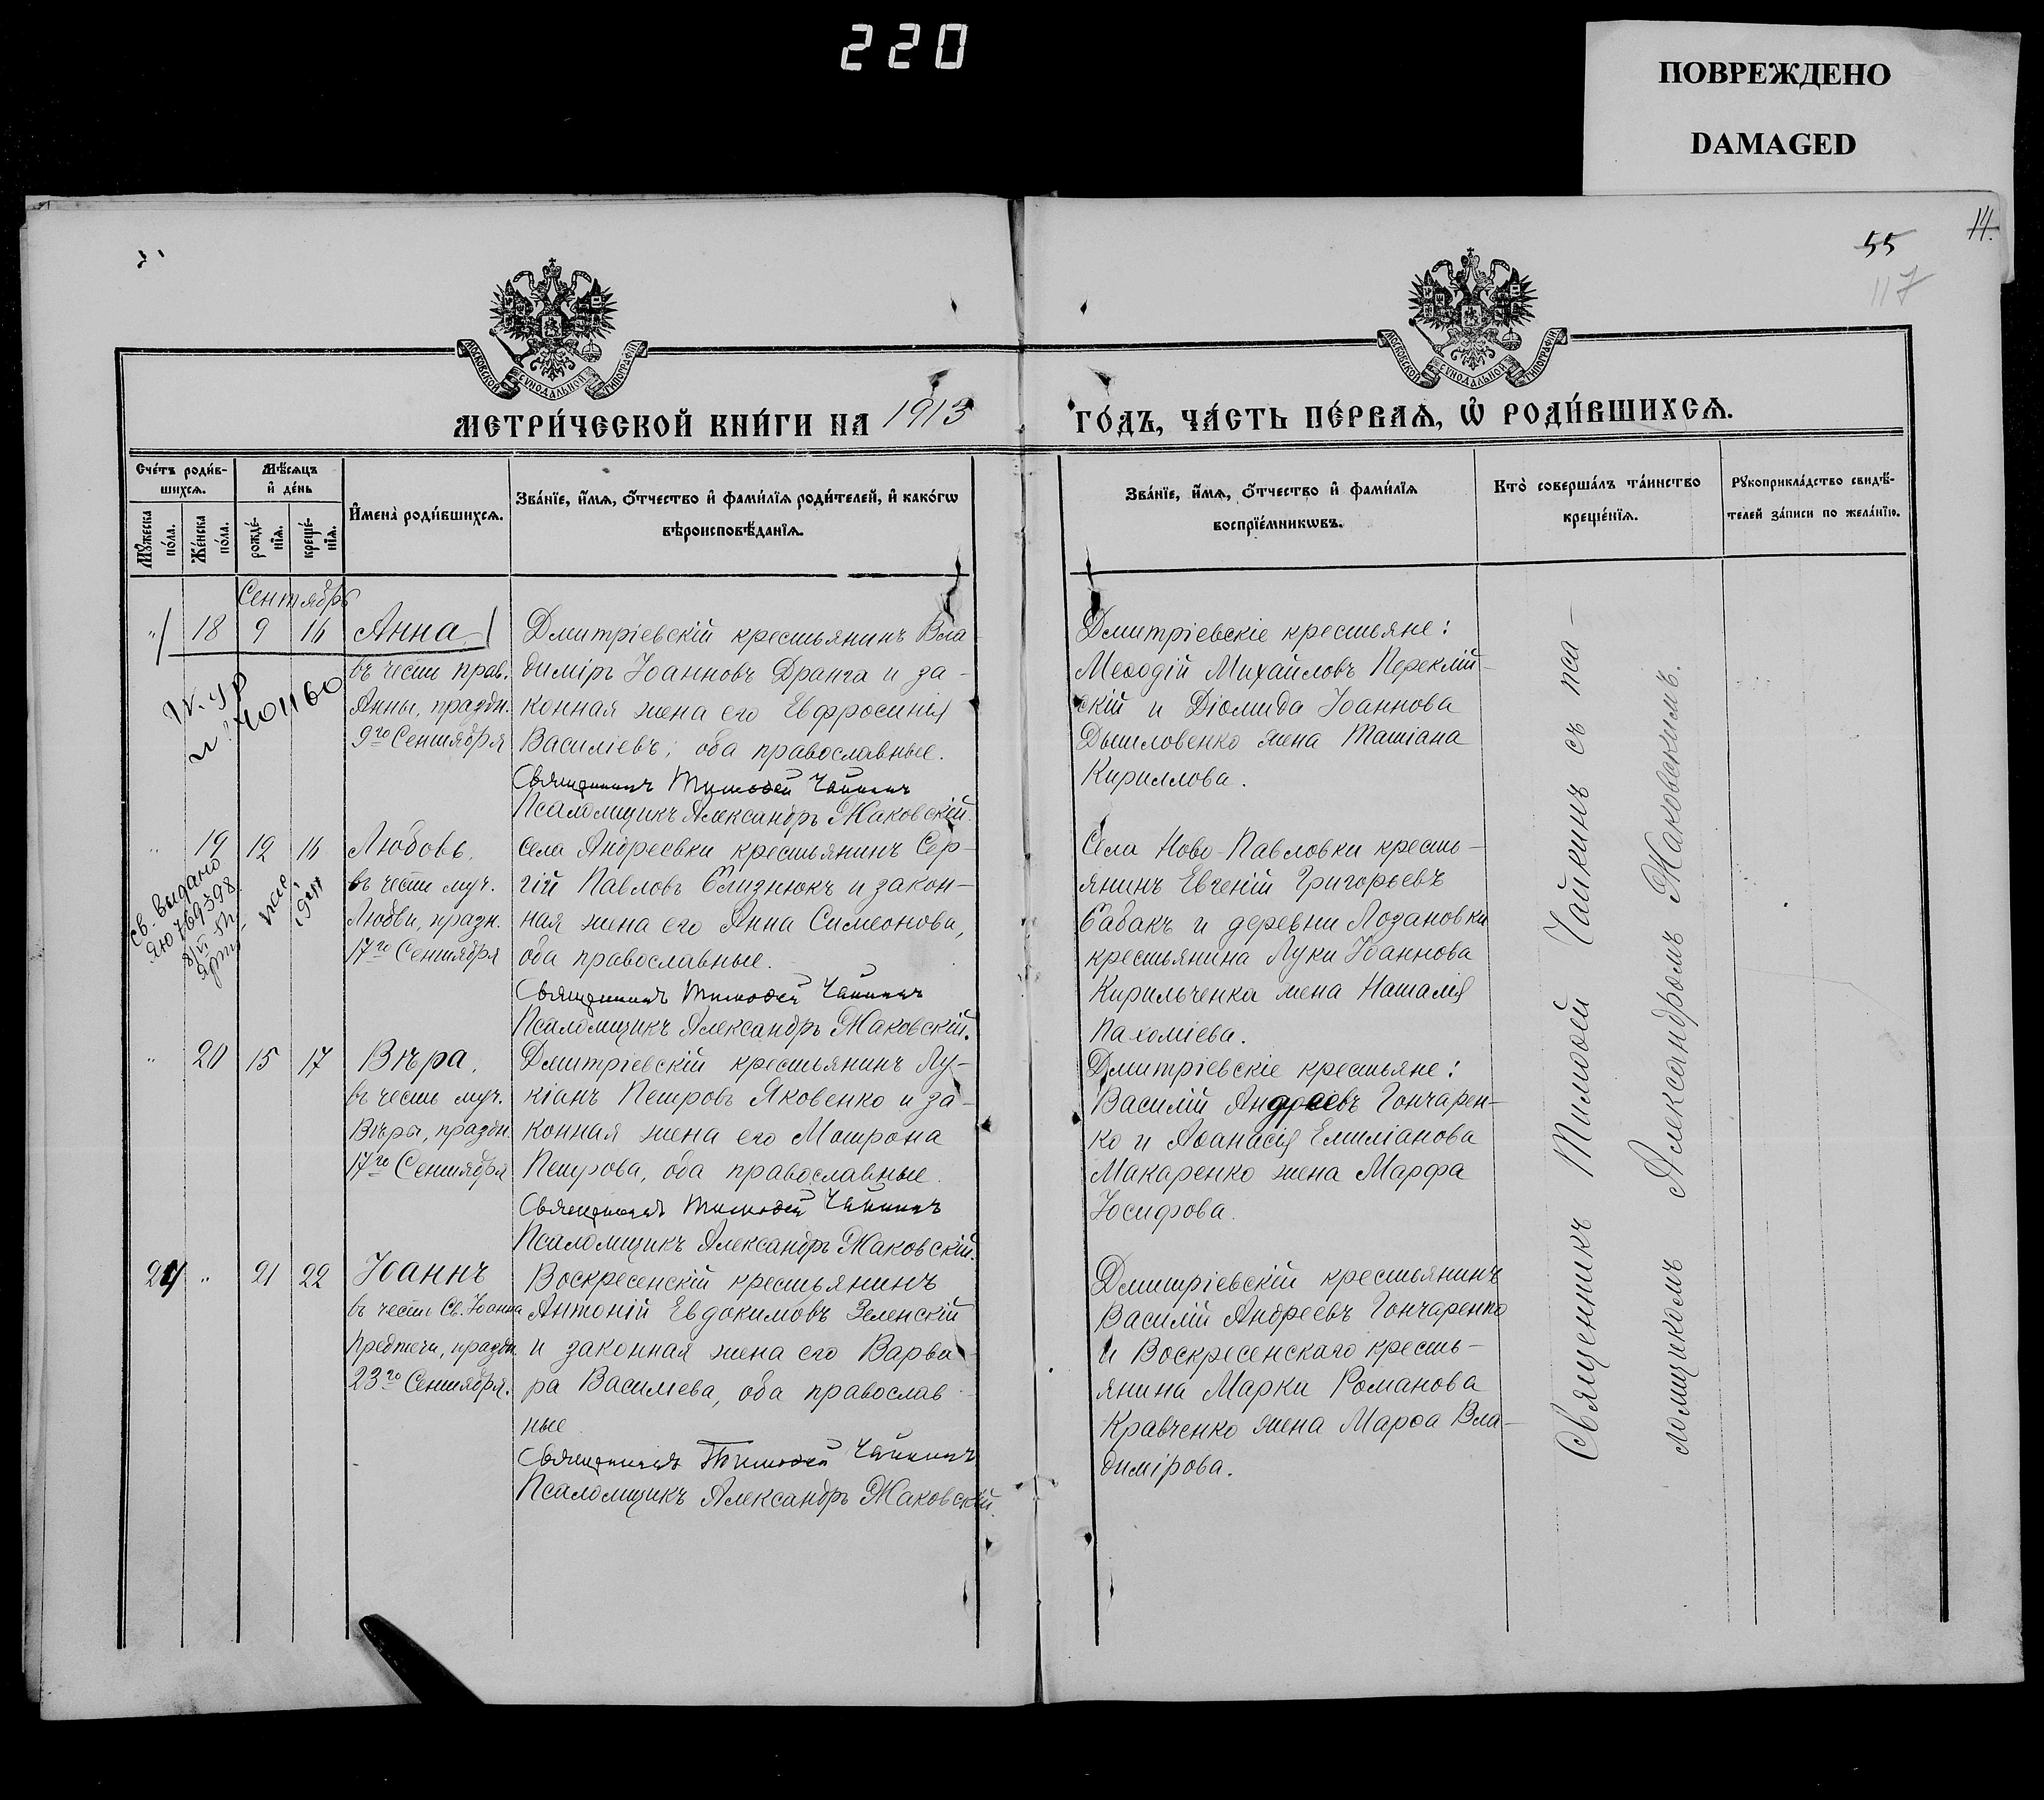 220
ПОВРЕЖДЕНО
DAMAGED
14.
55
117
МОСКОВСКОЙ СѴНОДАЛЬНОЙ ТИПОГРАФІИ
МОСКОВСКОЙ СѴНОДАЛЬНОЙ ТИПОГРАФІИ
МЕТРИ́ЧЕСКОЙ КНИ́ГИ НА 1913
ГО́ДЪ, ЧА́СТЬ ПЕ́РВАѦ, Ѡ҆ РОДИ́ВШИХСѦ.
Сче́тъ роди́в-
шихсѧ.
Мѣ́сѧцъ
и҆ де́нь
Мꙋ́жеска
по́ла.
Же́нска
по́ла.
рожде́-
нїѧ.
креще́-
нїѧ.
И҆мена̀ роди́вшихсѧ.
Зва́нїе, и҆́мѧ, ѻ҆́тчество и҆ фами́лїѧ роди́телей, и҆ како́гѡ
вѣроисповѣ́данїѧ.
Зва́нїе, и҆́мѧ, ѻ҆́тчество и҆ фами́лїѧ
воспрїе́мникѡвъ.
Кто̀ соверша́лъ та́инство
креще́нїѧ.
Рꙋкоприкла́дство свидѣ́-
телей за́писи по жела́нїю.
Сентябрь
" 18 9 16 Анна
въ честь прав.
Анны, праздн.
9го Сентября
401160
Дмитріевскій крестьянинъ Вла-
диміръ Іоанновъ Дранга и за-
конная жена его Евфросинія
Василіевъ; оба православные.
Священникъ Тимоѳей Чайкинъ
Псаломщикъ Александръ Жаковскій.
Дмитріевскіе крестьяне:
Меѳодій Михайловъ Переклій-
скій и Діомида Іоаннова
Дышловенко жена Татіана
Кириллова.
" 19 12 16 Любовь,
въ честь муч.
Любви, празн.
17го Сентября
св. выдано
ЯЮ 769598
села Андреевки крестьянинъ Сер-
гій Павловъ Близнюкъ и закон-
ная жена его Анна Симеонова,
оба православные.
Священникъ Тимоѳей Чайкинъ
Псаломщикъ Александръ Жаковскій.
Села Ново-Павловки кресть-
янинъ Евгеній Григорьевъ
Бабакъ и деревни Лозановки
крестьянина Луки Іоаннова
Кирильченка жена Наталія
Пахоміева.
" 20 15 17 Вѣра,
въ честь муч.
Вѣры, праздн.
17го Сентября
Дмитріевскій крестьянинъ Лу-
кіанъ Петровъ Яковенко и за-
конная жена его Матрона
Петрова, оба православные.
Священникъ Тимоѳей Чайкинъ
Псаломщикъ Александръ Жаковскій.
Дмитріевскіе крестьяне:
Василій Андреевъ Гончарен-
ко и Аѳанасія Емиліанова
Макаренко жена Марфа
Іосифова.
24 " 21 22 Іоаннъ
въ честь Св. Іоанна
Предтечи, праздн.
23го Сентября.
Воскресенскій крестьянинъ
Антоній Евдокимовъ Зеленскій
и законная жена его Варва-
ра Василіева, оба православ-
ные.
Священникъ Тимоѳей Чайкинъ
Псаломщикъ Александръ Жаковскій.
Дмитріевскій крестьянинъ
Василій Андреевъ Гончаренко
и Воскресенскаго кресть-
янина Марка Романова
Кравченко жена Марѳа Вла-
димірова.
Священникъ Тимоѳей Чайкинъ съ пса-
ломщикомъ Александромъ Жаковскимъ.